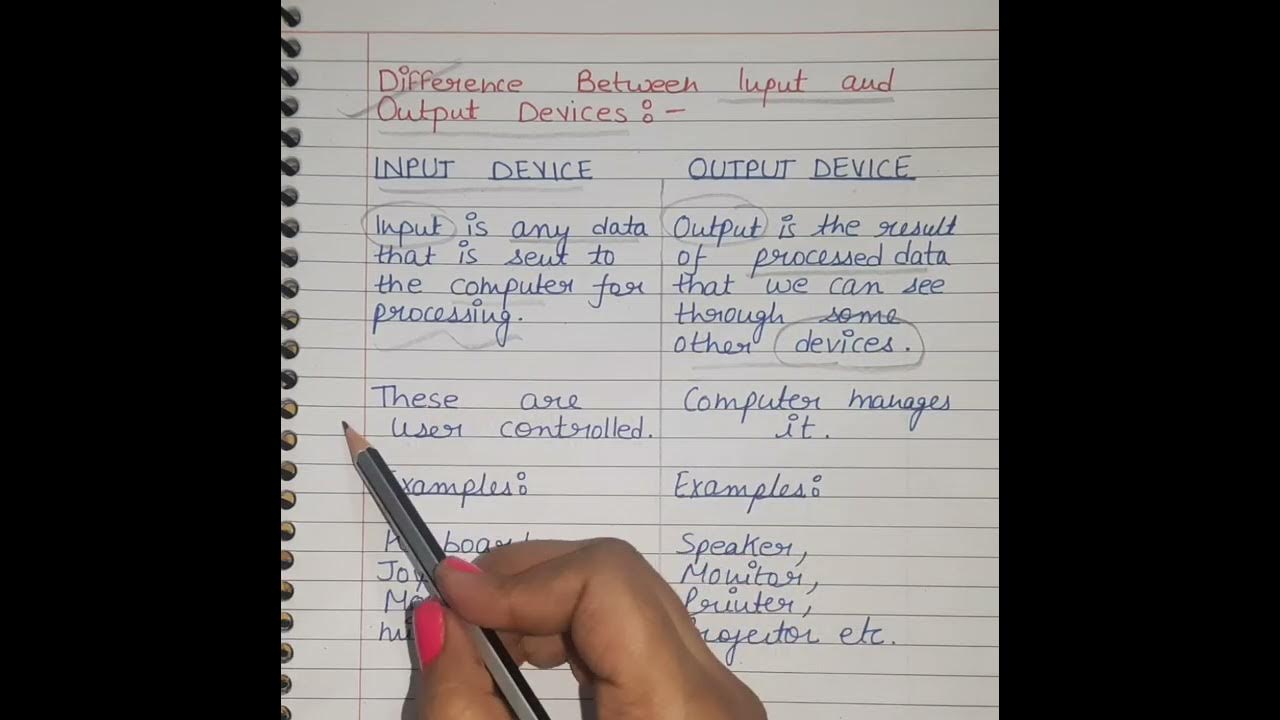 Difference Between Input and
Output Devices :-
INPUT DEVICE
OUTPUT DEVICE
Input is any data
that is sent to
the computer for
processing.
Output is the result
of processed data
that we can see
through some
other devices.
These are
User controlled.
Computer manages
it.
Examples:
Examples:
Speaker,
Monitor,
Printer,
Projector etc.